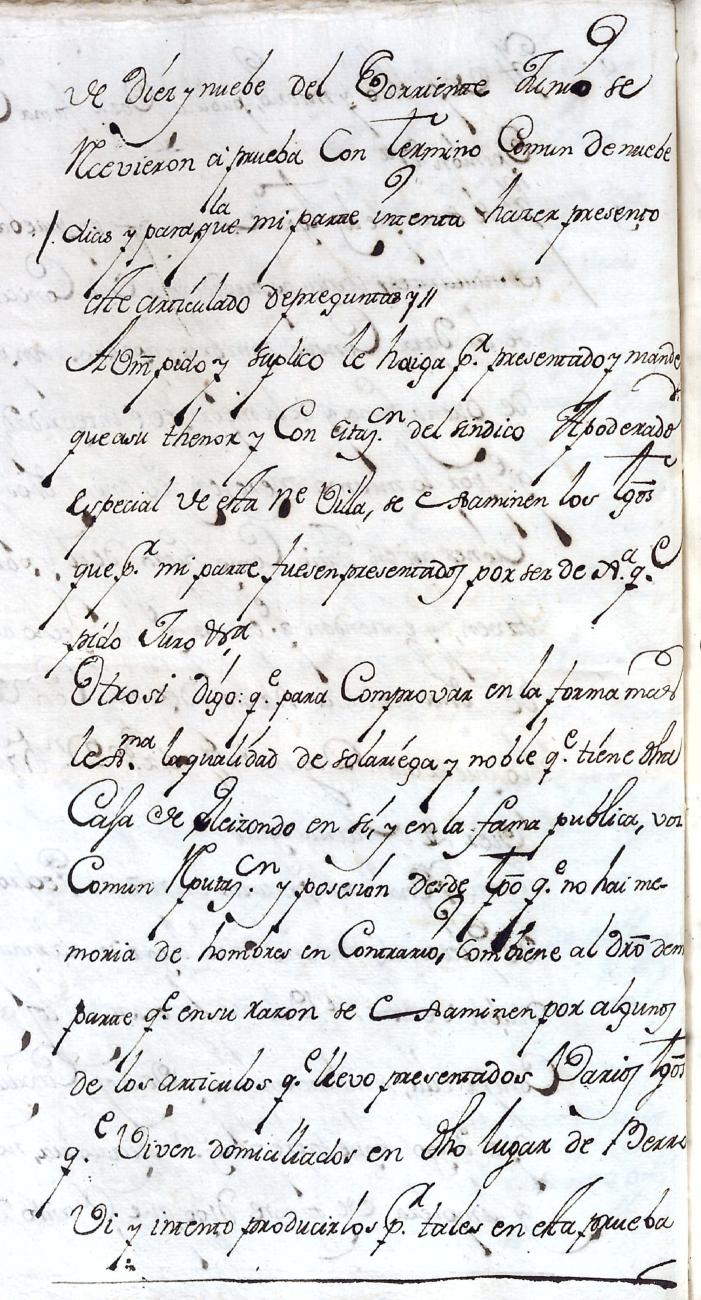 9
de Diez y nuebe del Corriente Junio se
Rcevieron a prueba Con termino Comun de nuebe
la
dias y para que mi parte intenta hazer presento
este articulado de preguntas y //
A Vm̃ pido y suplico le haiga p.r presentado y mande
que a su thenor y Con Citaz.on del sindico Apoderado
especial de esta Ne Villa, se examinen los tgõs
que p.r mi parte fuesen presentados por ser de Jta. q.e
pido Juro &.a
Otrosi digo: q.e para Comprovar en la forma mas
le xma. la qualidad de solariega y noble q.e tiene dha
Casa de Elcizondo en sí, y en la fama publica, voz
Comun Rputaz.on y posesion desde tpõ q.e no hai me-
moria de hombres en Contrario, Combiene al drõ de mi
parte q.e en su razon se examinen por algunos
de los articulos q.e llevo presentados Varios tgõs
q.e Viven domiciliados en dho lugar de Berro
Vi y intento producirlos p.r tales en esta prueba